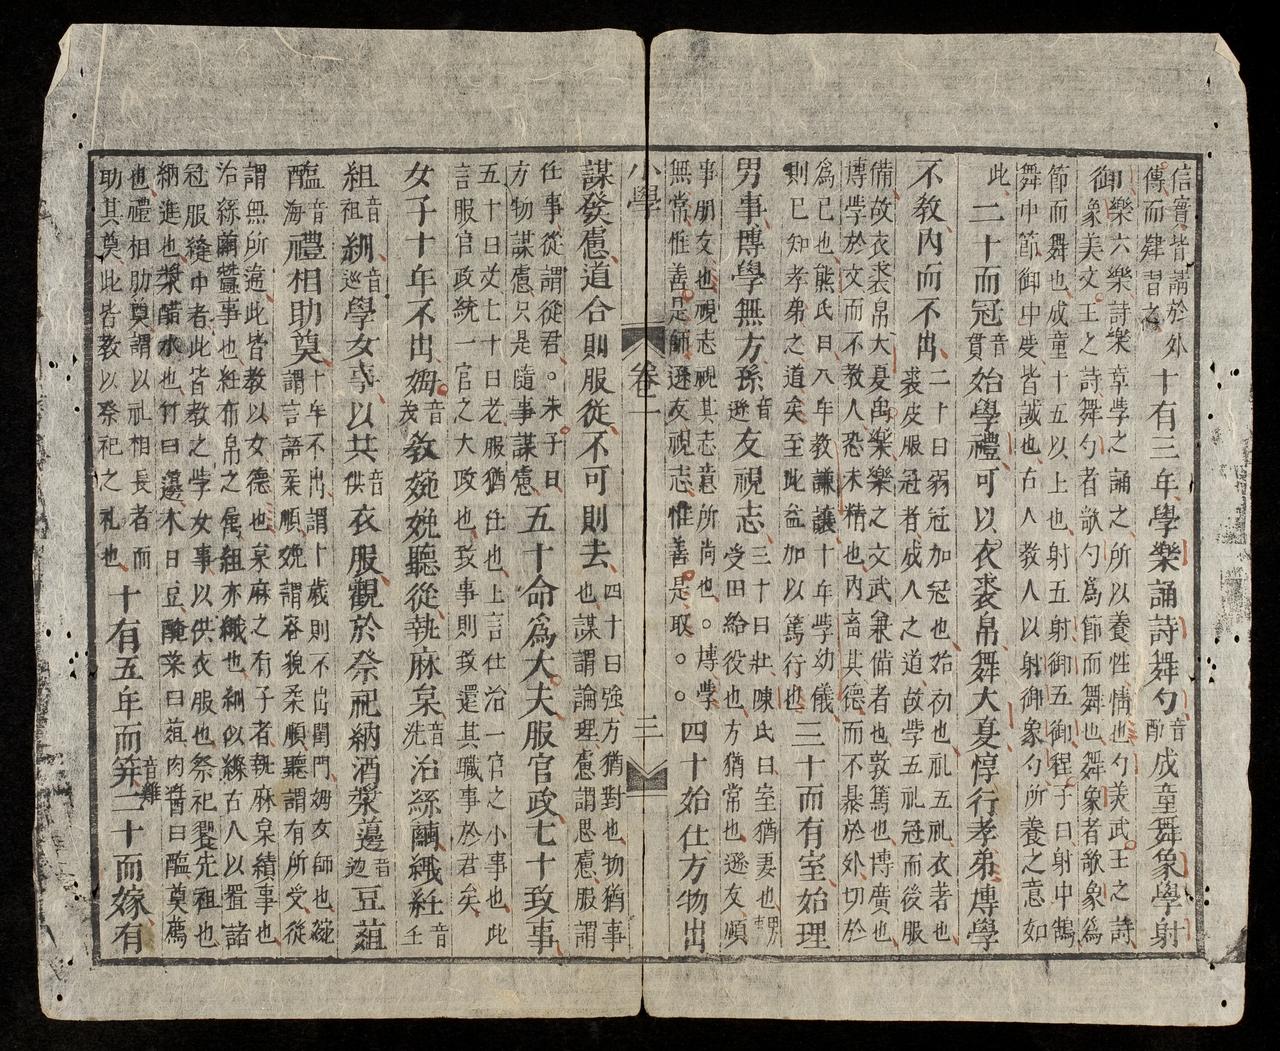 信實皆請於外
傳而肄習之
十有三年學樂誦詩舞勺音酌成童舞象學射
御
樂六樂詩樂章學之誦之所以養性情也勺美武王之詩
象美文王之詩舞勺者歌勺爲節而舞也舞象者歌象爲
節而舞也成童十五以上也射五射御五御程子曰射中鵠
舞中節御中度皆誠也古人教人以射御象勺所養之意如
此二十而冠音貫始學禮可以衣裘帛舞大夏惇行孝弟博學
不教内而不出
二十曰弱冠加冠也始初也礼五礼衣者也
裘皮服冠者成人之道故學五礼冠而後服
備故衣裘帛大夏禹樂樂之文武兼備者也敦篤也博廣也
博學於文而不教人恐未精也内畜其德而不暴於外切於
爲已也熊氏曰八年教謙讓十年學幼儀
則已知孝弟之道矣至此益加以篤行也
三十而有室始理
男事博學無方孫音遜友視志
三十曰壯陳氏曰室猶妻也男事
受田給役也方猶常也遜友順
事朋友也視志視其志意所尚也。博學
無常惟善是師遜友視志惟善是取。。
四十始仕方物出
小學 卷二 三
謀發慮道合則服從不可則去
四十曰強方猶對也物猶事
也謀謂論理慮謂思慮服謂
任事從謂從君。朱子曰
方物謀慮只是隨事謀慮
五十命爲大夫服官政七十致事
五十曰艾七十曰老服猶任也上言仕治一官之小事也此
言服官政統一官之大政也致事則致還其職事於君矣
女子十年不出姆音茂教婉娩聽從執麻枲音洗治絲繭織紝音壬
組音祖紃音巡學女事以共音供衣服觀於祭祀納酒漿籩音边豆葅
醢音海禮相助奠
十年不出謂十歳則不出閨門姆女師也婉
謂言語柔順娩謂容貌柔順聽謂有所受從
謂無所違此皆教以女德也枲麻之有子者執麻枲績事也
治絲繭蠶事也紝布帛之属組亦織也紃似絛古人以置諸
冠服縫中者此皆教之學女事以供衣服也祭祀饗先祖也
納進也漿醋水也竹曰籩木曰豆醃菜曰葅肉醤曰醢奠薦
也禮相助奠謂以礼相長者而
助其奠此皆教以祭祀之礼也
十有五年而笄音雞二十而嫁有